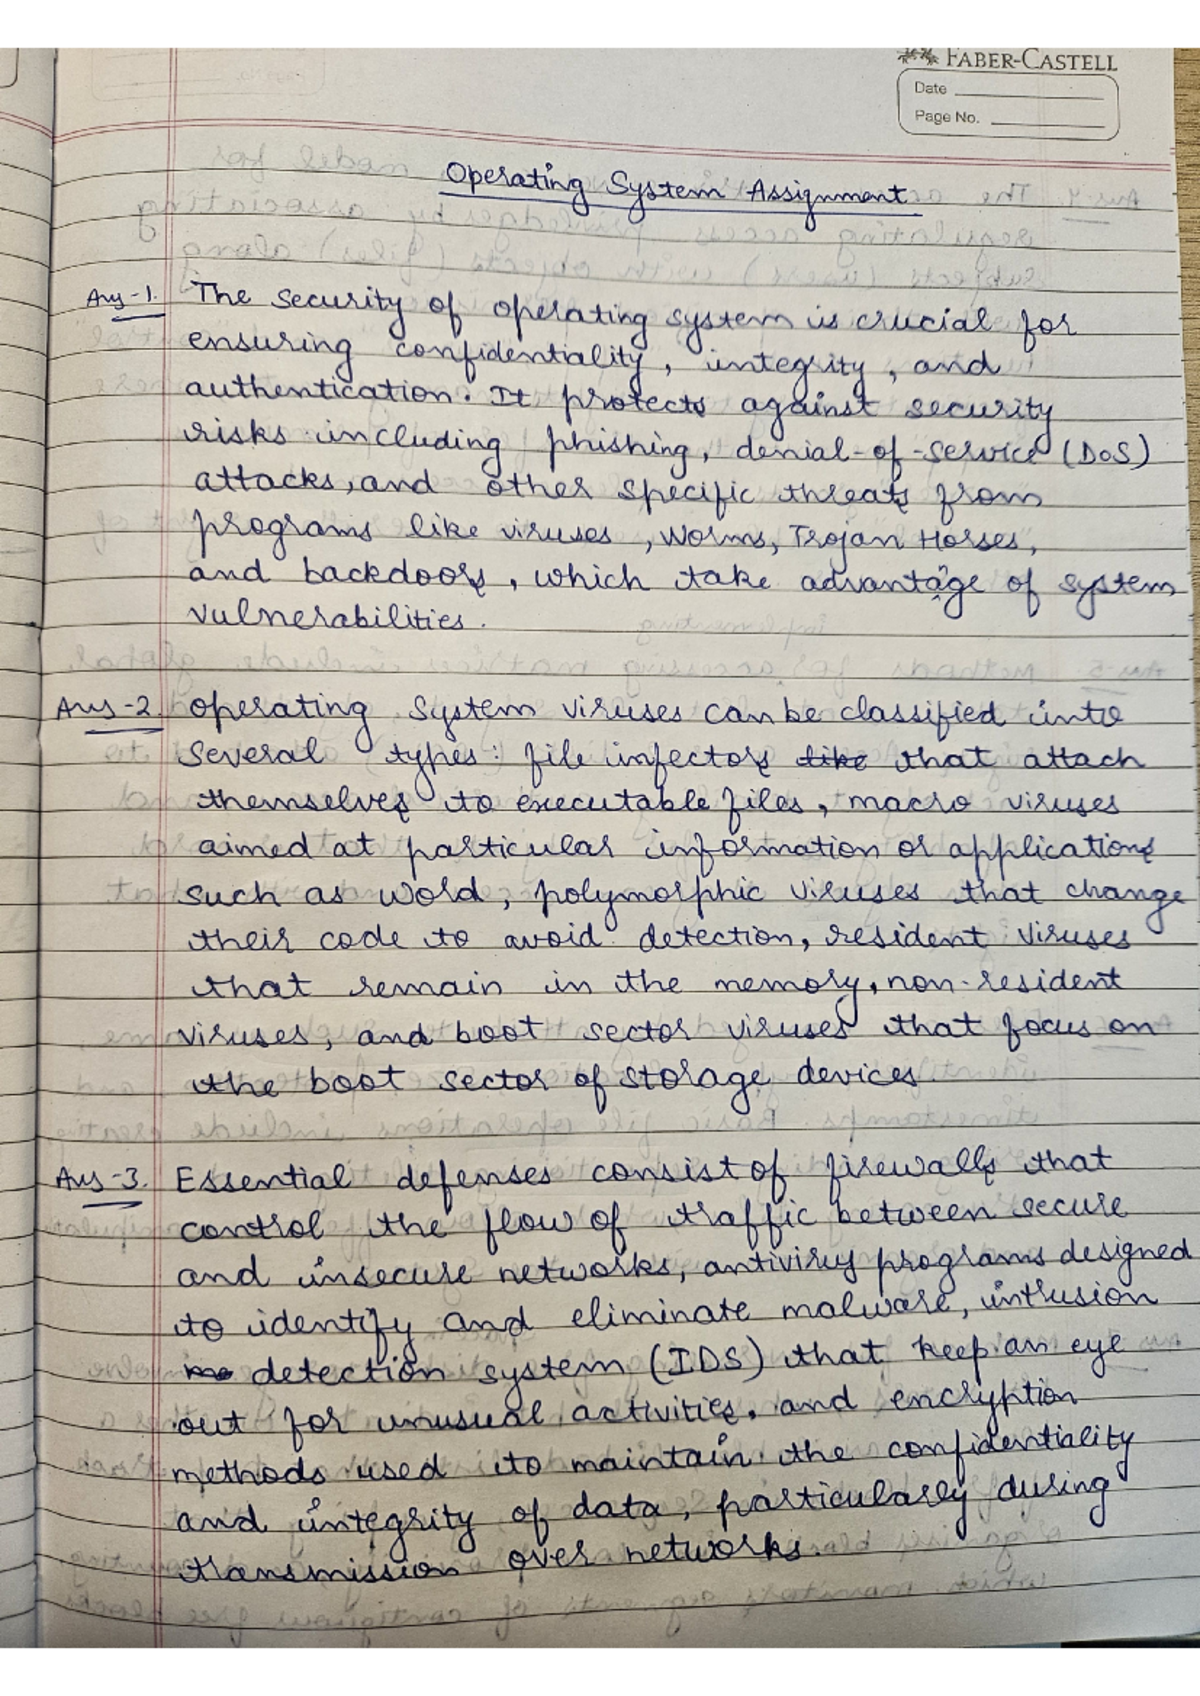 FABER-CASTELL
Date
Page No.
Operating System Assignment
Ans-1. The security of operating system is crucial for
ensuring confidentiality, integrity, and
authentication. It protects against security
risks including phishing, denial-of-service (DoS)
attacks, and other specific threats from
programs like viruses, Worms, Trojan Horses,
and backdoors, which take advantage of system
vulnerabilities.
Ans-2. Operating System viruses can be classified into
Several types: file infectors like that attach
themselves to executable files, macro viruses
aimed at particular information or applications
such as word, polymorphic viruses that change
their code to avoid detection, resident viruses
that remain in the memory, non-resident
viruses, and boot sector viruses that focus on
the boot sector of storage devices.
Ans-3. Essential defenses consist of firewalls that
control the flow of traffic between secure
and insecure networks, antivirus programs designed
to identify and eliminate malware, intrusion
detection system (IDS) that keep an eye
out for unusual activities, and encryption
methods used to maintain the confidentiality
and integrity of data, particularly during
transmission over networks.